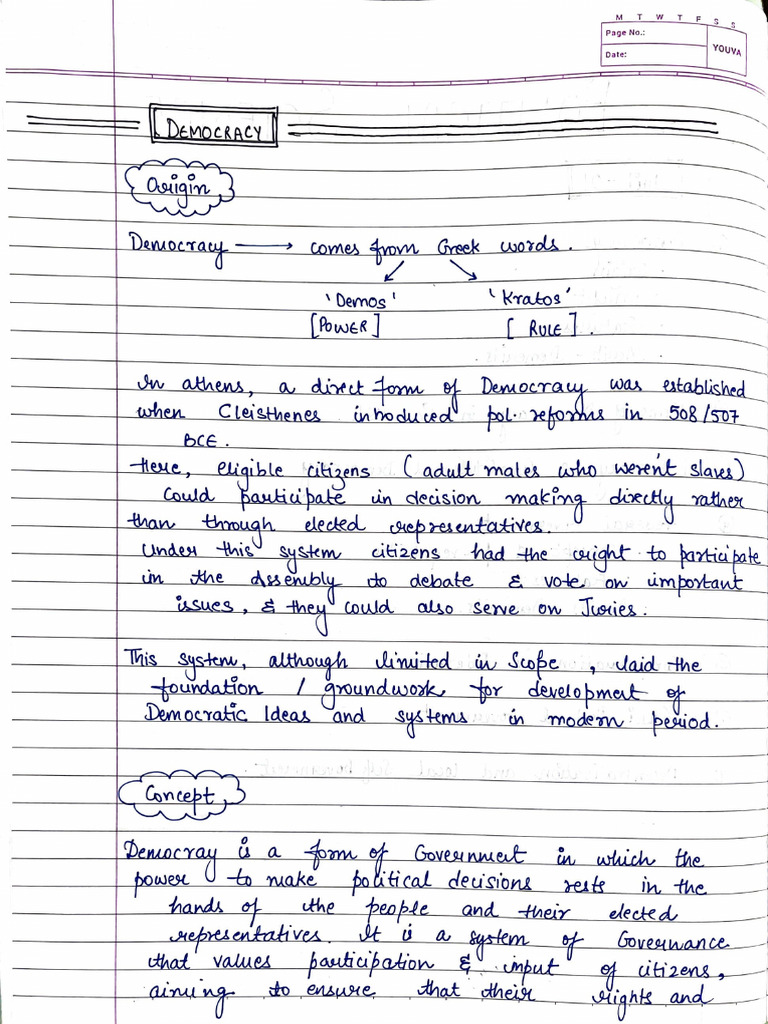 M T W T F S S
Page No.:
Date:
YOUVA
DEMOCRACY
Origin
Democracy → comes from Greek words.
'Demos' 'Kratos'
[POWER] [RULE].
In athens, a direct form of Democracy was established
when Cleisthenes introduced pol. reforms in 508/507
BCE.
Here, eligible citizens (adult males who weren't slaves)
could participate in decision making directly rather
than through elected representatives.
Under this system citizens had the right to participate
in the Assembly to debate & vote on important
issues, & they could also serve on Juries.
This system, although limited in Scope, laid the
foundation / groundwork for development of
Democratic Ideas and systems in modern period.
Concept
Democray is a form of Government in which the
power to make political decisions rests in the
hands of the people and their elected
representatives. It is a system of Governance
that values participation & input of citizens,
aiming to ensure that their rights and